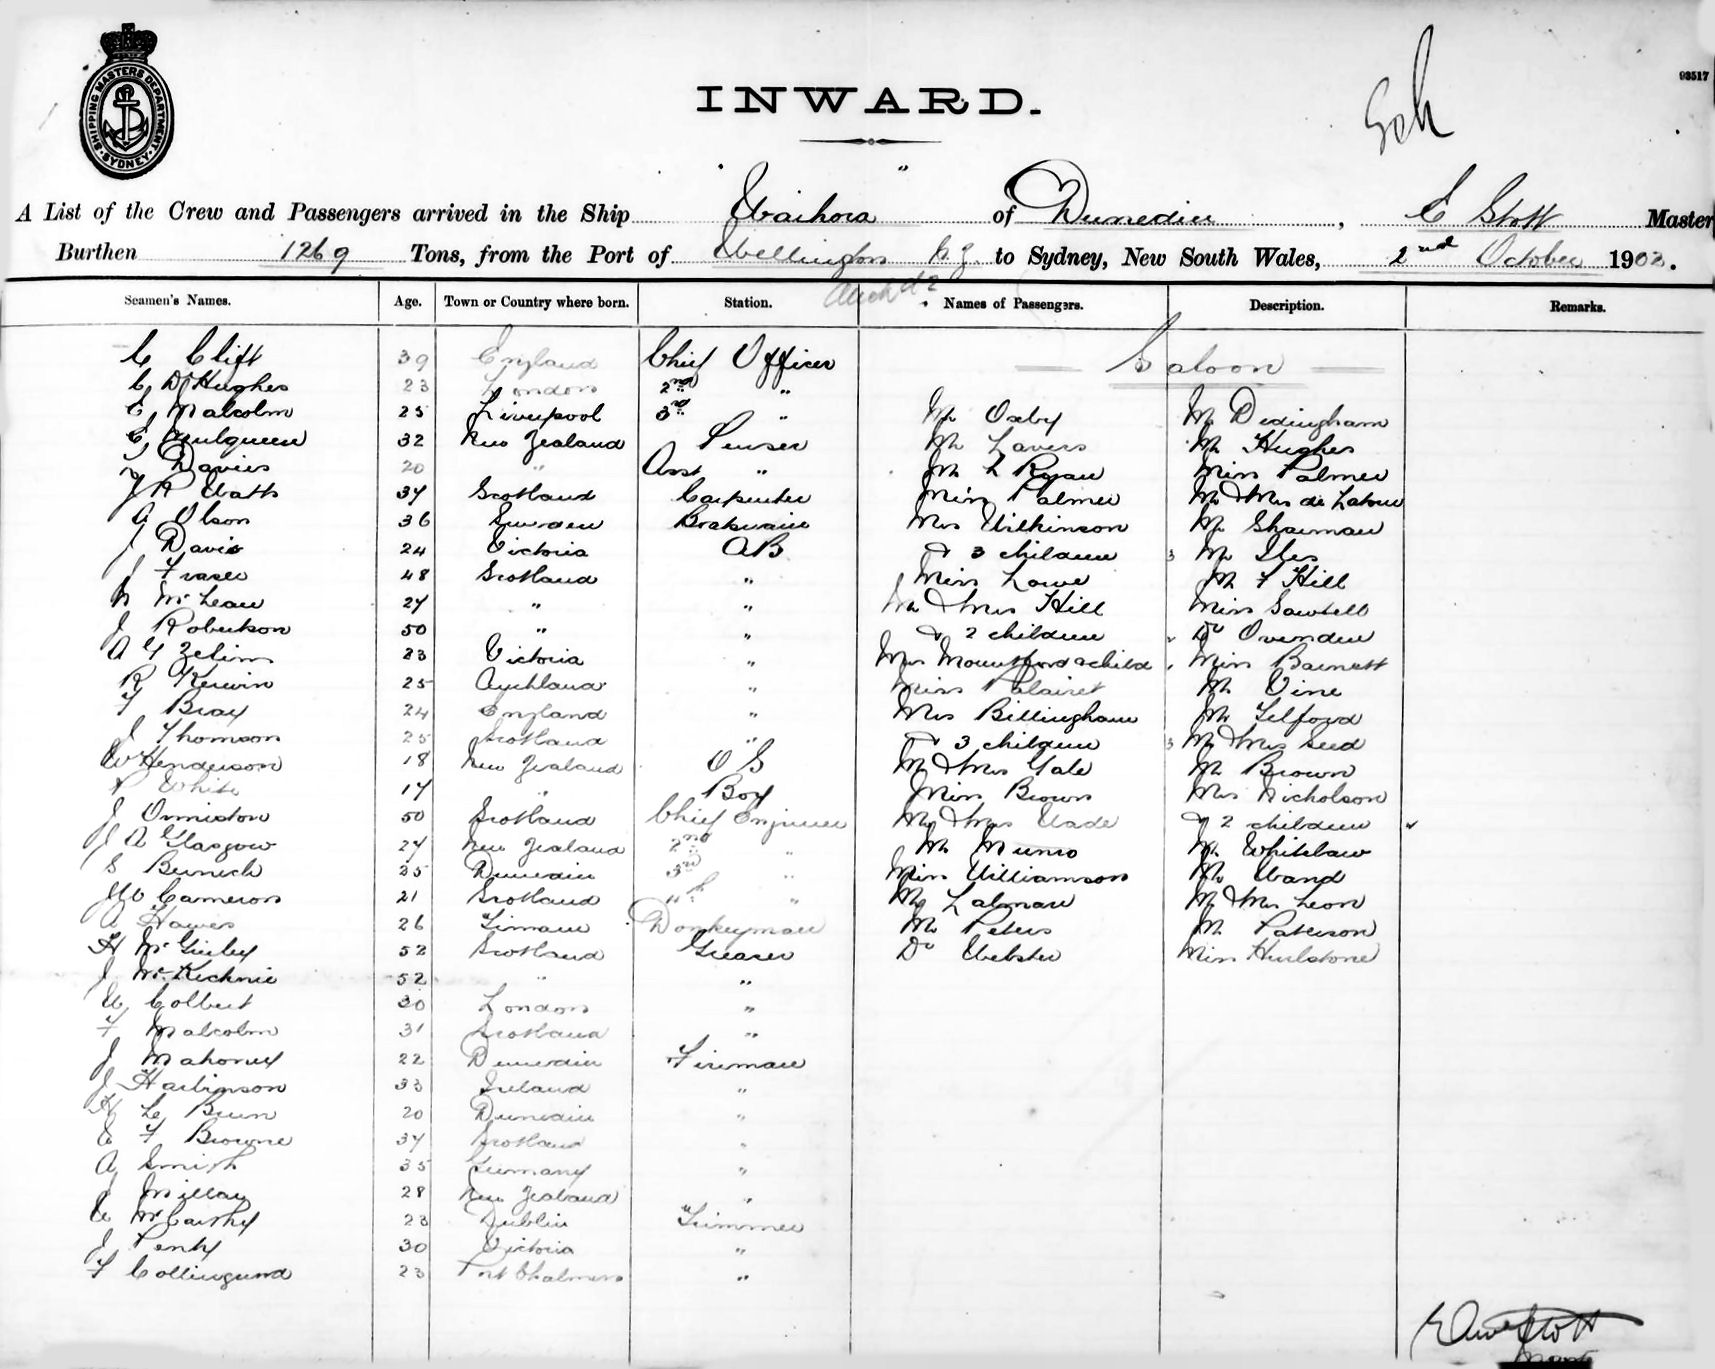 SHIPPING MASTERS DEPARTMENT
SYDNEY
93517
INWARD.
A List of the Crew and Passengers arrived in the Ship "Waihora" of Dunedin, E Stott Master
Burthen 1269 Tons, from the Port of Wellington N.Z. to Sydney, New South Wales, 2nd October 1902.
Seamen's Names. Age. Town or Country where born. Station. Names of Passengers. Description. Remarks.
Saloon
C Clift 39 England Chief Officer
C D Hughes 23 London 2nd "
E Malcolm 25 Liverpool 3rd " Mr Oxby
32 New Zealand Purser Mr Lavers Mr Hughes
Davies 20 " Asst " Mr L Ryan Miss Palmer
J R Watts 37 Scotland Carpenter Miss Palmer Mr & Mrs de Latour
A Olson 36 Sweden Boatswain Mrs Wilkinson Mr Sharman
J Davis 24 Victoria AB & 3 children 3 Mr Iles
J Fraser 48 Scotland " Miss Lowe Mr F Hill
N McLean 27 " " Mr & Mrs Hill Miss Sawtell
J Robertson 50 " " & 2 children Dr Ovenden
A G 23 Victoria " Mrs Mountford & child Miss Barnett
R Kerwin 25 Auckland " Miss Palairet Mr Vine
F Bray 24 England " Mrs Billingham Mr Telford
J Thomson 25 Scotland " & 3 children 3 Mr & Mrs Seed
W Henderson 18 New Zealand O S Mr & Mrs Gale Mr Brown
White 17 " Boy Miss Brown Mrs Nicholson
J Ormiston 50 Scotland Chief Engineer Mr & Mrs Wade & 2 children
J A Glasgow 27 New Zealand 2nd " Mr Munro Mr Whitelaw
S 25 Dunedin 3rd " Miss Williamson Mr Wand
Cameron 21 Scotland 4th " Mr Mr & Mrs Leon
A Hawes 26 Timaru Donkeyman Mr Peters Mr Paterson
H 52 Scotland Greaser Dr Webster Miss Hurlstone
J McKechnie 52 " "
W Colbert 30 London "
F Malcolm 31 Scotland "
J Mahoney 22 Dunedin Fireman
J Harbinson 33 Ireland "
H 20 Dunedin "
E F Browne 37 Scotland "
A Smith 35 Germany "
Millar 28 New Zealand "
McCarthy 23 Dublin Trimmer
J 30 Victoria "
F Collingwood 23 Port Chalmers "